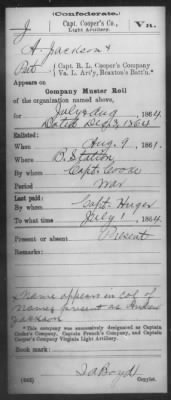 (Confederate.)
J Capt. Cooper's Co., Va.
Light Artillery.
A. Jackson
Pvt Capt. R. L. Cooper's Company
Va. L. Art'y, Braxton's Batt'n.*
Appears on
Company Muster Roll
of the organization named above,
for July & Aug, 1864.
Dated Dec 3, 1864
Enlisted:
When Aug. 9, 1861.
Where B. Station
By whom Capt. Cooke
Period War
Last paid:
By whom Capt. Huger
To what time July 1, 1864.
Present or absent Present
Remarks:
Name appears in col of
names present as
Jackson
*This company was successively designated as Captain
Cooke's Company, Captain French's Company, and Captain
Cooper's Company Virginia Light Artillery.
Book mark:
(642) Copyist.